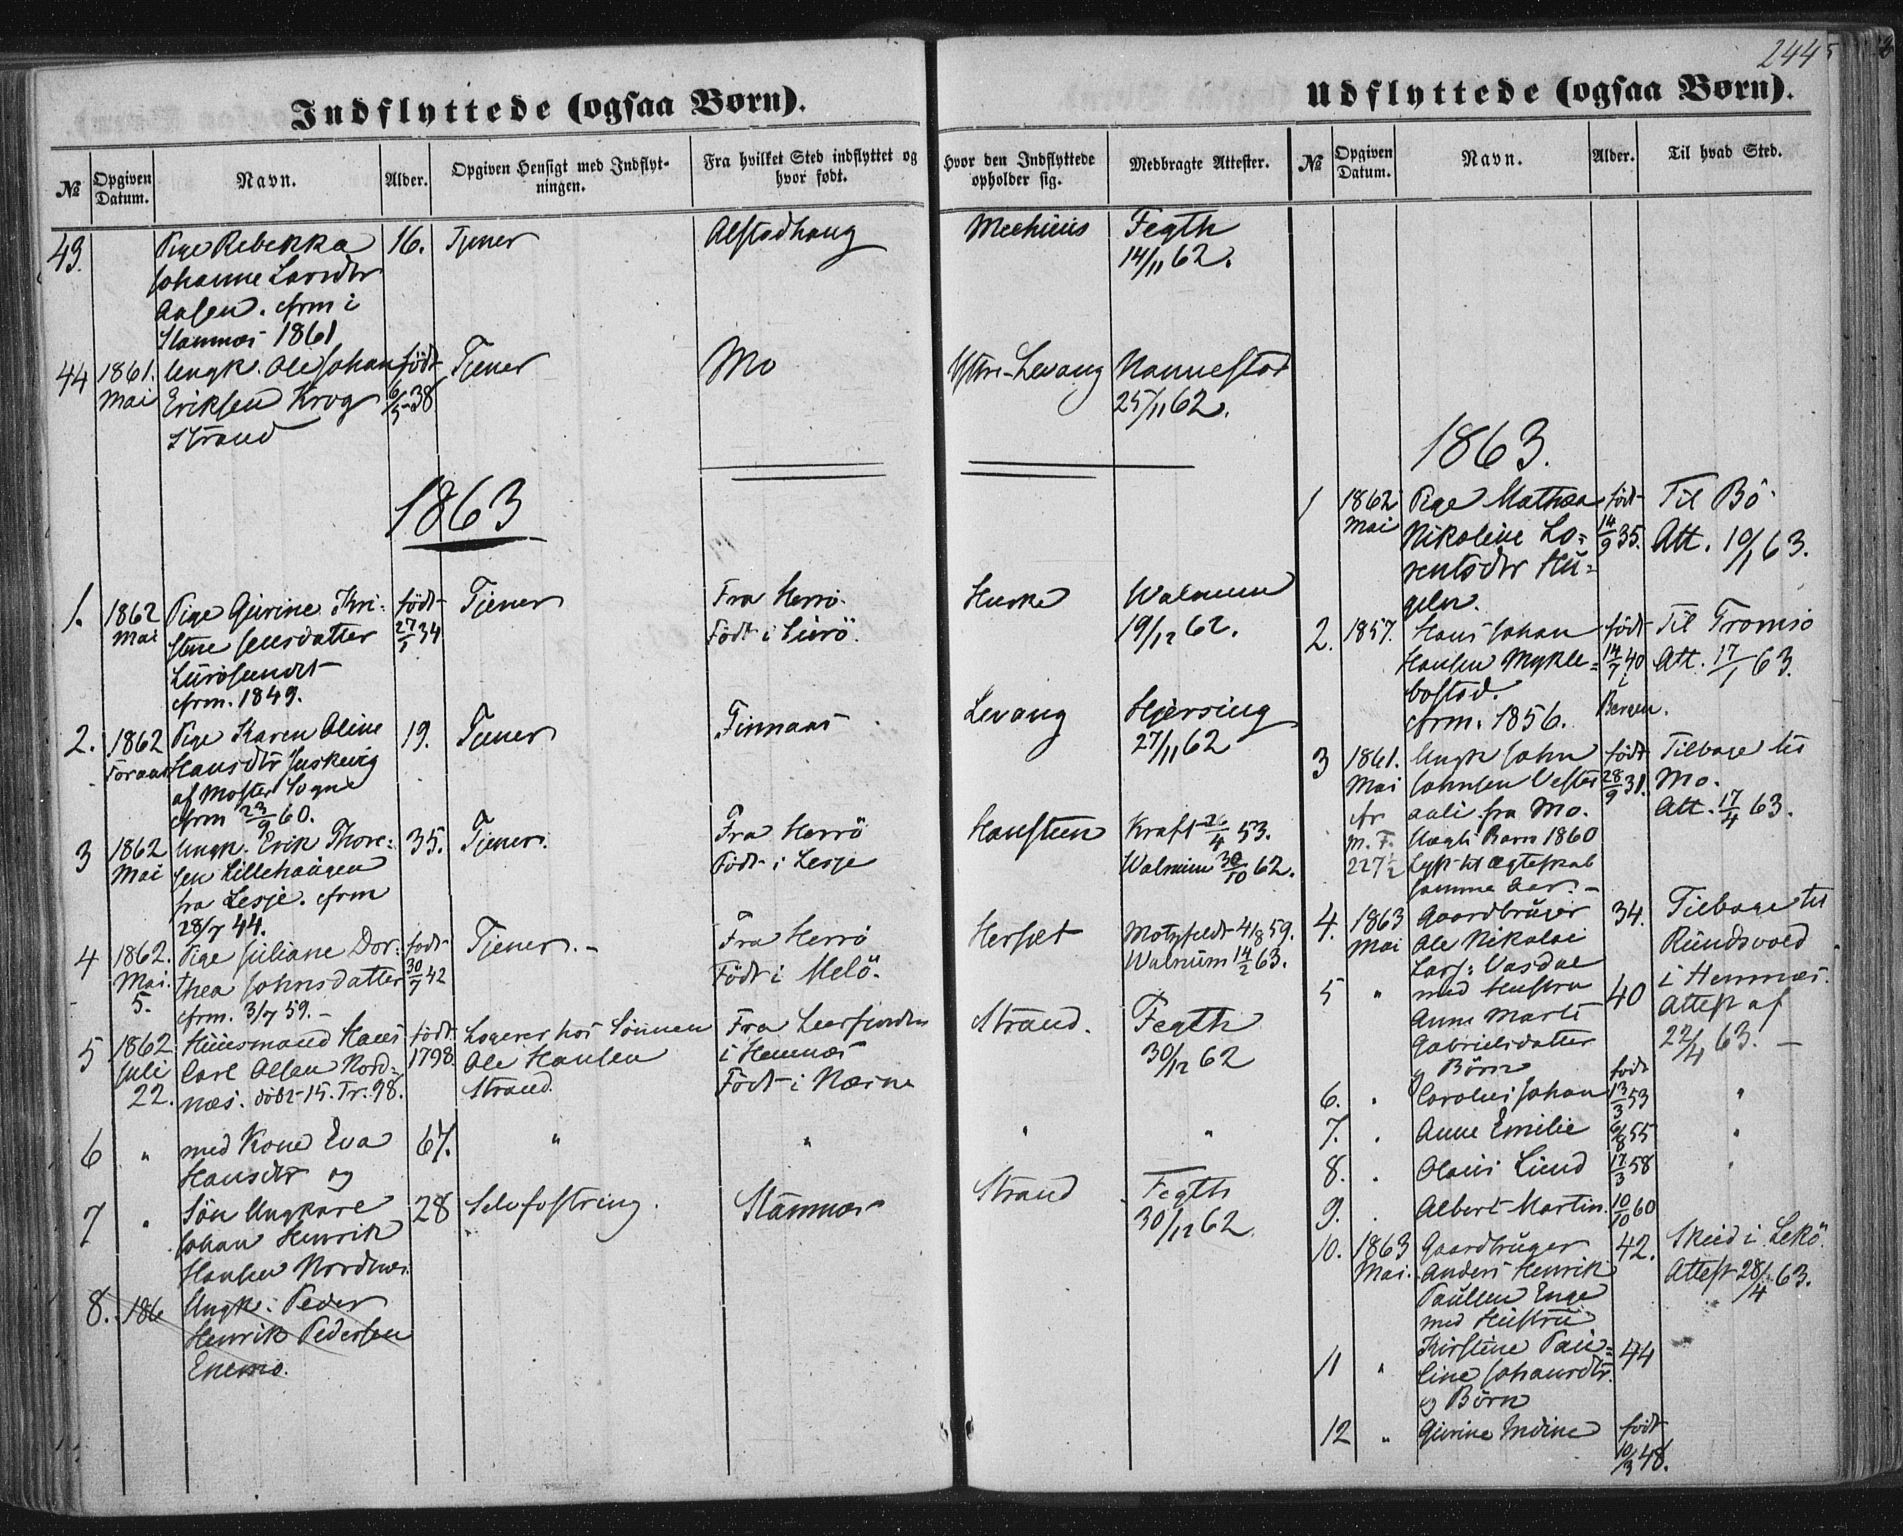 2445
Indflyttede (ogsaa Børn).
Udflyttede (ogsaa Børn).
№
Opgiven Datum.
Navn.
Alder.
Opgiven Hensigt med Indflyt-
ningen.
Fra hvilket Sted indflyttet og
hvor født.
Hvor den Indflyttede
opholder sig.
Medbragte Attester.
43.
Pige Rebekka
Johanne Larsdtr
Aasen. cfrm i
Stamnæs 1861
16.
Tjener
Alstadhaug
Fegth
14/11 62.
44
1861.
Mai
Ungk. Ole Johan
Eriksen Krog
Strand
født
6/5-38
Tjener
Mo
Ytre-Levang
Nannestad
25/11 62.
1863
1.
1862
Mai
Pige Gurine Kri-
stine Jensdatter
Lurösundet
cfrm. 1849.
født
27/1 34
Tjener
Fra Herrö.
Födt i Lurö.
Huske
Walnum
19/12 62.
2.
1862
Foraar
Pige Karen Oline
Hansdtr
af Moster Sogne
cfrm 23/9 60.
19.
Tjener
Finnaas
Levang
Hjersing
27/11 62
3
1862
Mai
Ungk. Erik Thore-
sen Lillehaugen
fra Lesje. cfrm
28/7 44.
35.
Tjener.
Fra Herrö
Födt i Lesje
Hansteen
Kraft 26/4 53.
Walnum 30/10 62.
4
1862.
Mai.
5.
Pige Juliane Dor-
thea Johnsdatter
cfrm. 3/7 59.-
født
30/7 42
Tjener.-
Fra Herrö
Födt i Melö.
Herset
Motzfeldt 4/8 59.
Walnum 14/2 63.
5
1862
Juli
22.
Huusmand Hans
Carl Olsen Nord-
næs. döbt 15. Tr. 98.
født
1798.
Logerer hos Sönnen
Ole Hansen
Strand.
Fra Leerfjorden
i Hemnæs
Födt i Nærøe
Strand.
Fegth
30/12 62
6
"
med Kone Eva
Hansdtr og
67.
"
"
"
"
7
"
Sön Ungkarl
Johan Henrik
Hansen Nordnæs
28
Selvfostring.
Stamnæs
Strand
Fegth
30/12 62
8.
186
Ungk. Peder
Henrik Pedersen
Enemo.
№
Opgiven Datum.
Navn.
Alder.
Til hvad Sted.
1863.
1
1862
Mai
Pige Mathea
Nikoline Lo-
rentsdtr Hu-
geln.
født
14/9 35.
Til Bö
Att. 10/1 63.
2.
1857.
Hans Johan
Hansen Mykle-
bostad.
cfrm. 1856.
født
14/7 40
i
Bergen.
Til Tromsö
Att. 17/1 63.
3
1861.
Mai
cfr
m. F.
227½
Ungk John
Johnsen Vester
aali fra Mo.
Uægte Barn 1860
Lyst til Ægteskab
samme Aar.-
født
28/9 31.
Tilbage til
Mo.
Att. 17/4 63.
4.
1863
Mai
Gaardbruger
Ole Nikolai
Lars: Vasdal
34.
Tilbage til
Rundsvold
i Hemnæs.
Attest af
22/4 63. -
5
"
med Hustru
Anne Marts
Gabrielsdatter
og Börn
40
født
6.
.
Carolus Johan
13/3 53
"
7.
.
Anne Emilie
6/8 55
"
8.
.
Olaus Lund
17/3 58
"
9.
.
Albert Martin.
10/10 60
10.
1863
Mai.
Gaardbruger
Anders Henrik
Paulsen Enge
med Hustru
42.
Skeid i Lekö.
Attest 28/4 63.
11
"
Kirstine Pau-
line Johansdtr.
og Börn
44
12
"
Gurine Indine
født
10/3 48.